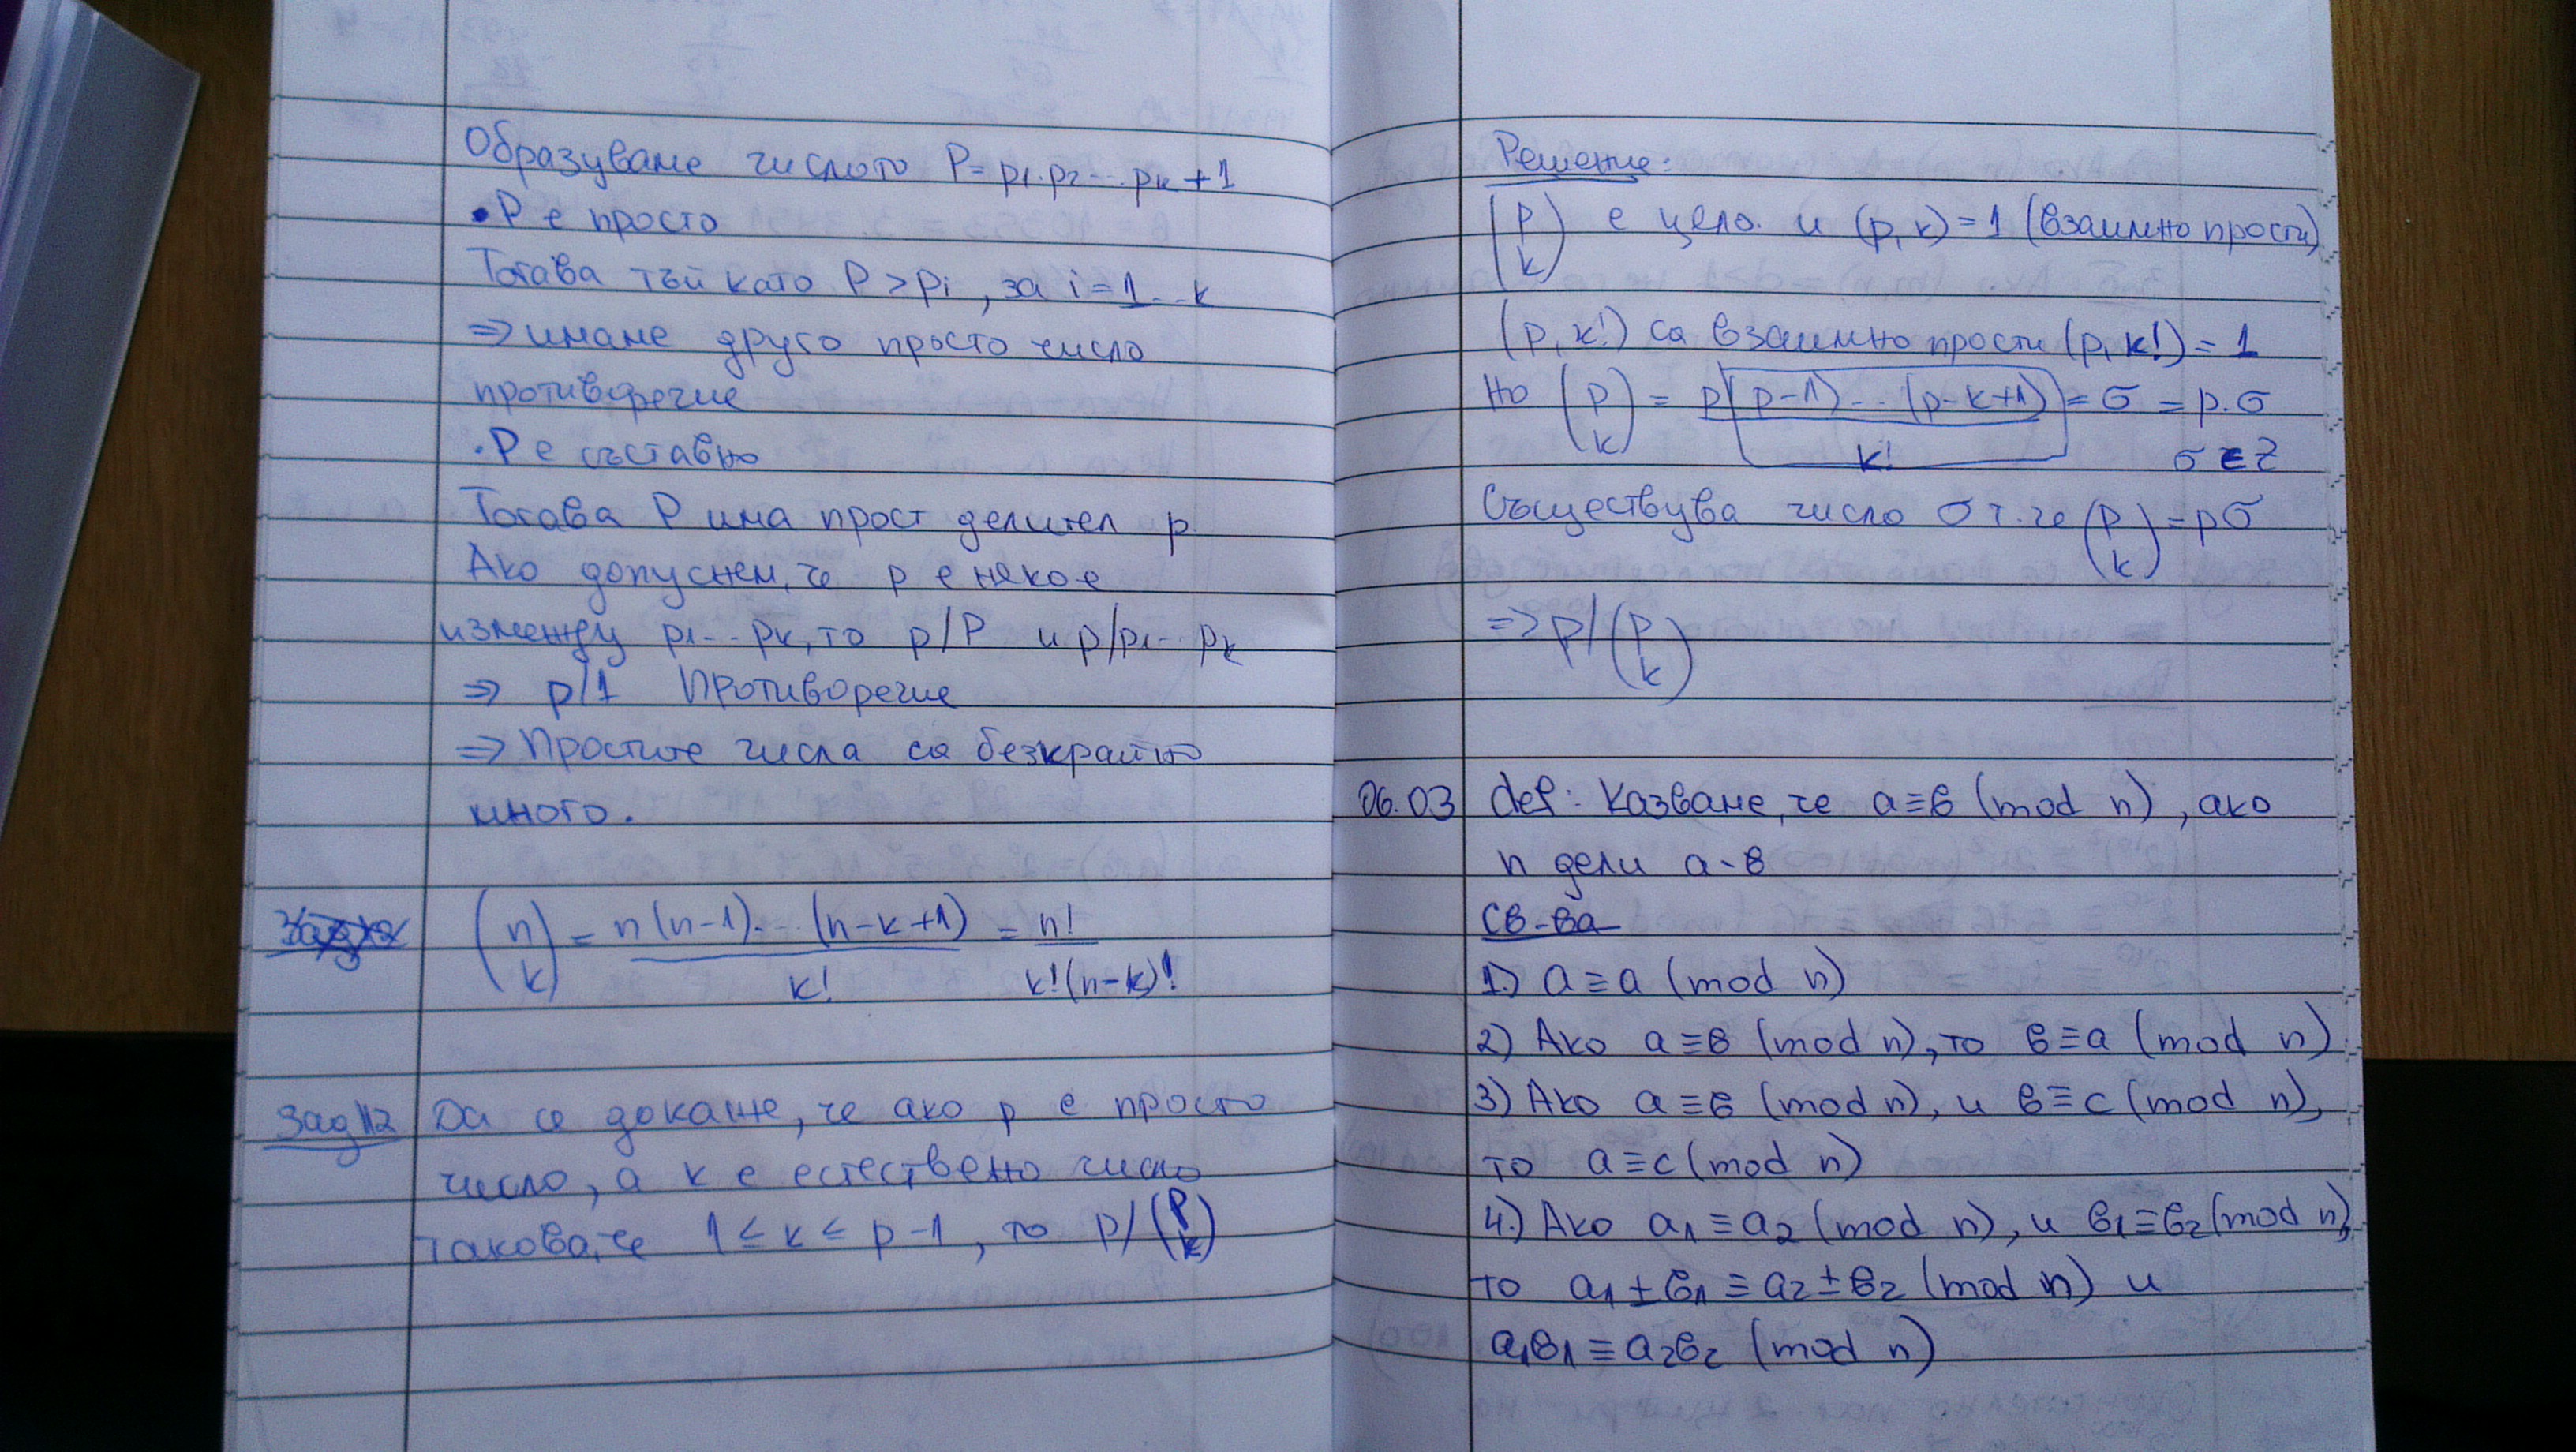 Образуваме числото P = p₁.p₂...pₖ+1
• P е просто
Тогава тъй като P > pᵢ, за i = 1...k
⇒ имаме друго просто число
противоречие
• P е съставно
Тогава P има прост делител p.
Ако допуснем, че p е някое
измежду p₁...pₖ, то p/P и p/p₁...pₖ
⇒ p/1 Противоречие
⇒ Простите числа са безкрайно
много.
(n k) = n(n-1)...(n-k+1) / k! = n! / k!(n-k)!
Зад12 Да се докаже, че ако p е просто
число, а k е естествено число
такова, че 1 ≤ k ≤ p-1, то p/(p k)
Решение:
(p k) е цело. и (p, k) = 1 (взаимно прости)
(p, k!) са взаимно прости (p, k!) = 1
Но (p k) = p(p-1)...(p-k+1) / k! = σ = p.σ
σ ∈ Z
Съществува число σ т.че (p k) = pσ
=> p/(p k)
06.03 def: Казваме, че a≡в (mod n), ако
n дели a-в
Св-ва
1.) a≡a (mod n)
2) Ако a≡в (mod n), то в≡a (mod n)
3) Ако a≡в (mod n), и в≡c (mod n),
то a≡c (mod n)
4.) Ако a₁≡a₂ (mod n), и в₁≡в₂ (mod n),
то a₁±в₁≡a₂±в₂ (mod n) и
a₁в₁≡a₂в₂ (mod n)